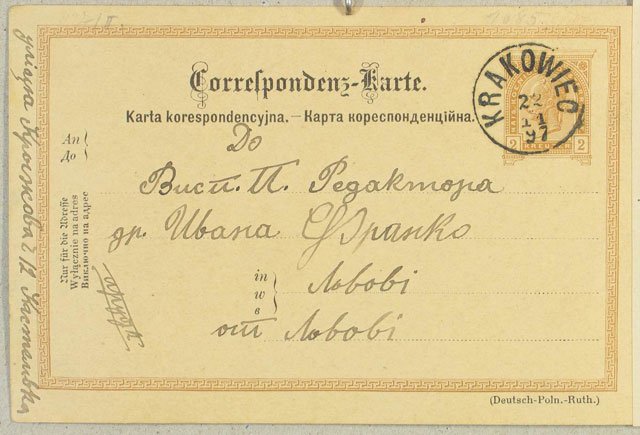 Correspondenz-Karte.
Karta korespondencyjna. — Карта кореспонденційна.
KRAKOWIEC
22
11
97
2 KREUZER 2
До
An
До
Висп. П. Редактора
др. Ивана Франко
in
w
в
Львові
от Львові
Nur für die Adresse
Wyłącznie na adres
Виключно на адрес
улица Крыжова ч 12
(Deutsch-Poln.-Ruth.)